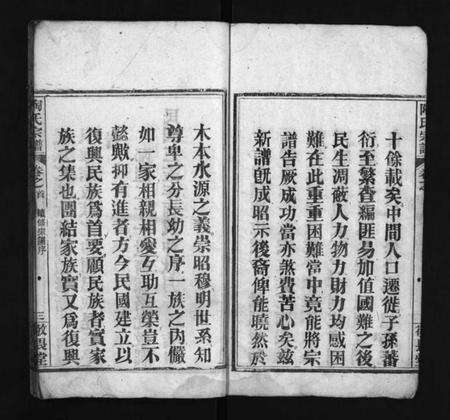 十餘載矣中間人口遷徙子孫蕃
衍至繁查編匪易加值國難之後
民生凋蔽人力物力財力均感困
難在此重重困難當中竟能將宗
譜告厥成功當亦煞費苦心矣茲
新譜既成昭示後裔俾能曉然於
木本水源之義崇昭穆明世系知
尊卑之分長幼之序一族之內儼
如一家相親相愛互助互榮豈不
懿歟抑有進者方今民國建立以
復興民族為首要顧民族者實家
族之集也團結家族實又為復興
陶氏宗譜
卷之首
續修宗譜序
三